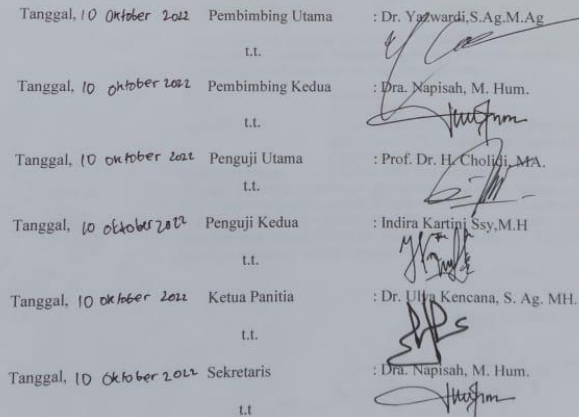 Tanggal, 10 Oktober 2022 Pembimbing Utama : Dr. Yazwardi,S.Ag.M.Ag
t.t.
Tanggal, 10 oktober 2022 Pembimbing Kedua : Dra. Napisah, M. Hum.
t.t.
Tanggal, 10 oktober 2022 Penguji Utama : Prof. Dr. H. Cholidi, MA.
t.t.
Tanggal, 10 oktober 2022 Penguji Kedua : Indira Kartini Ssy,M.H
t.t.
Tanggal, 10 oktober 2022 Ketua Panitia : Dr. Ulya Kencana, S. Ag. MH.
t.t.
Tanggal, 10 Oktober 2022 Sekretaris : Dra. Napisah, M. Hum.
t.t